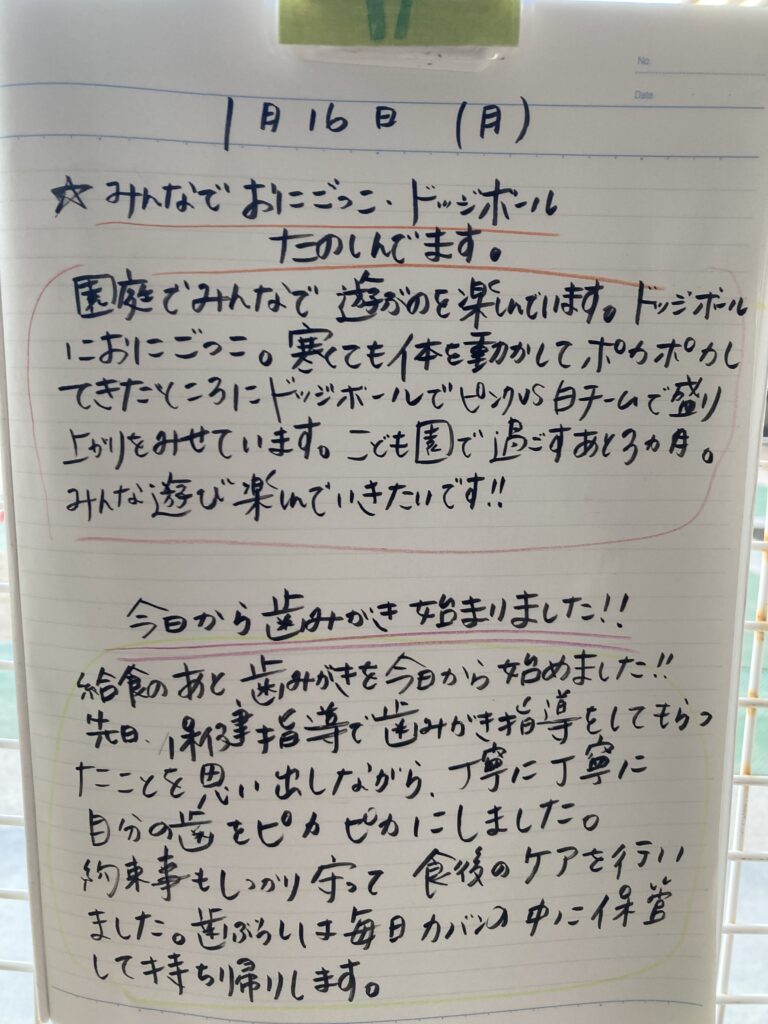 No.
Date
1月16日 (月)
☆みんなでおにごっこ・ドッジボール
たのしんでます。
園庭でみんなで遊ぶのを楽しんでいます。ドッジボール
におにごっこ。寒くても体を動かしてポカポカし
てきたところにドッジボールでピンクVS白チームで盛り
上がりをみせています。こども園で過ごすあと3カ月。
みんな遊び楽しんでいきたいです!!
今日から歯みがき始まりました!!
給食のあと、歯みがきを今日から始めました!!
先日、保健指導で歯みがき指導をしてもらっ
たことを思い出しながら、丁寧に丁寧に
自分の歯をピカピカにしました。
約束事もしっかり守って食後のケアを行い
ました。歯ぶらしは毎日カバンの中に保管
して持ち帰りします。